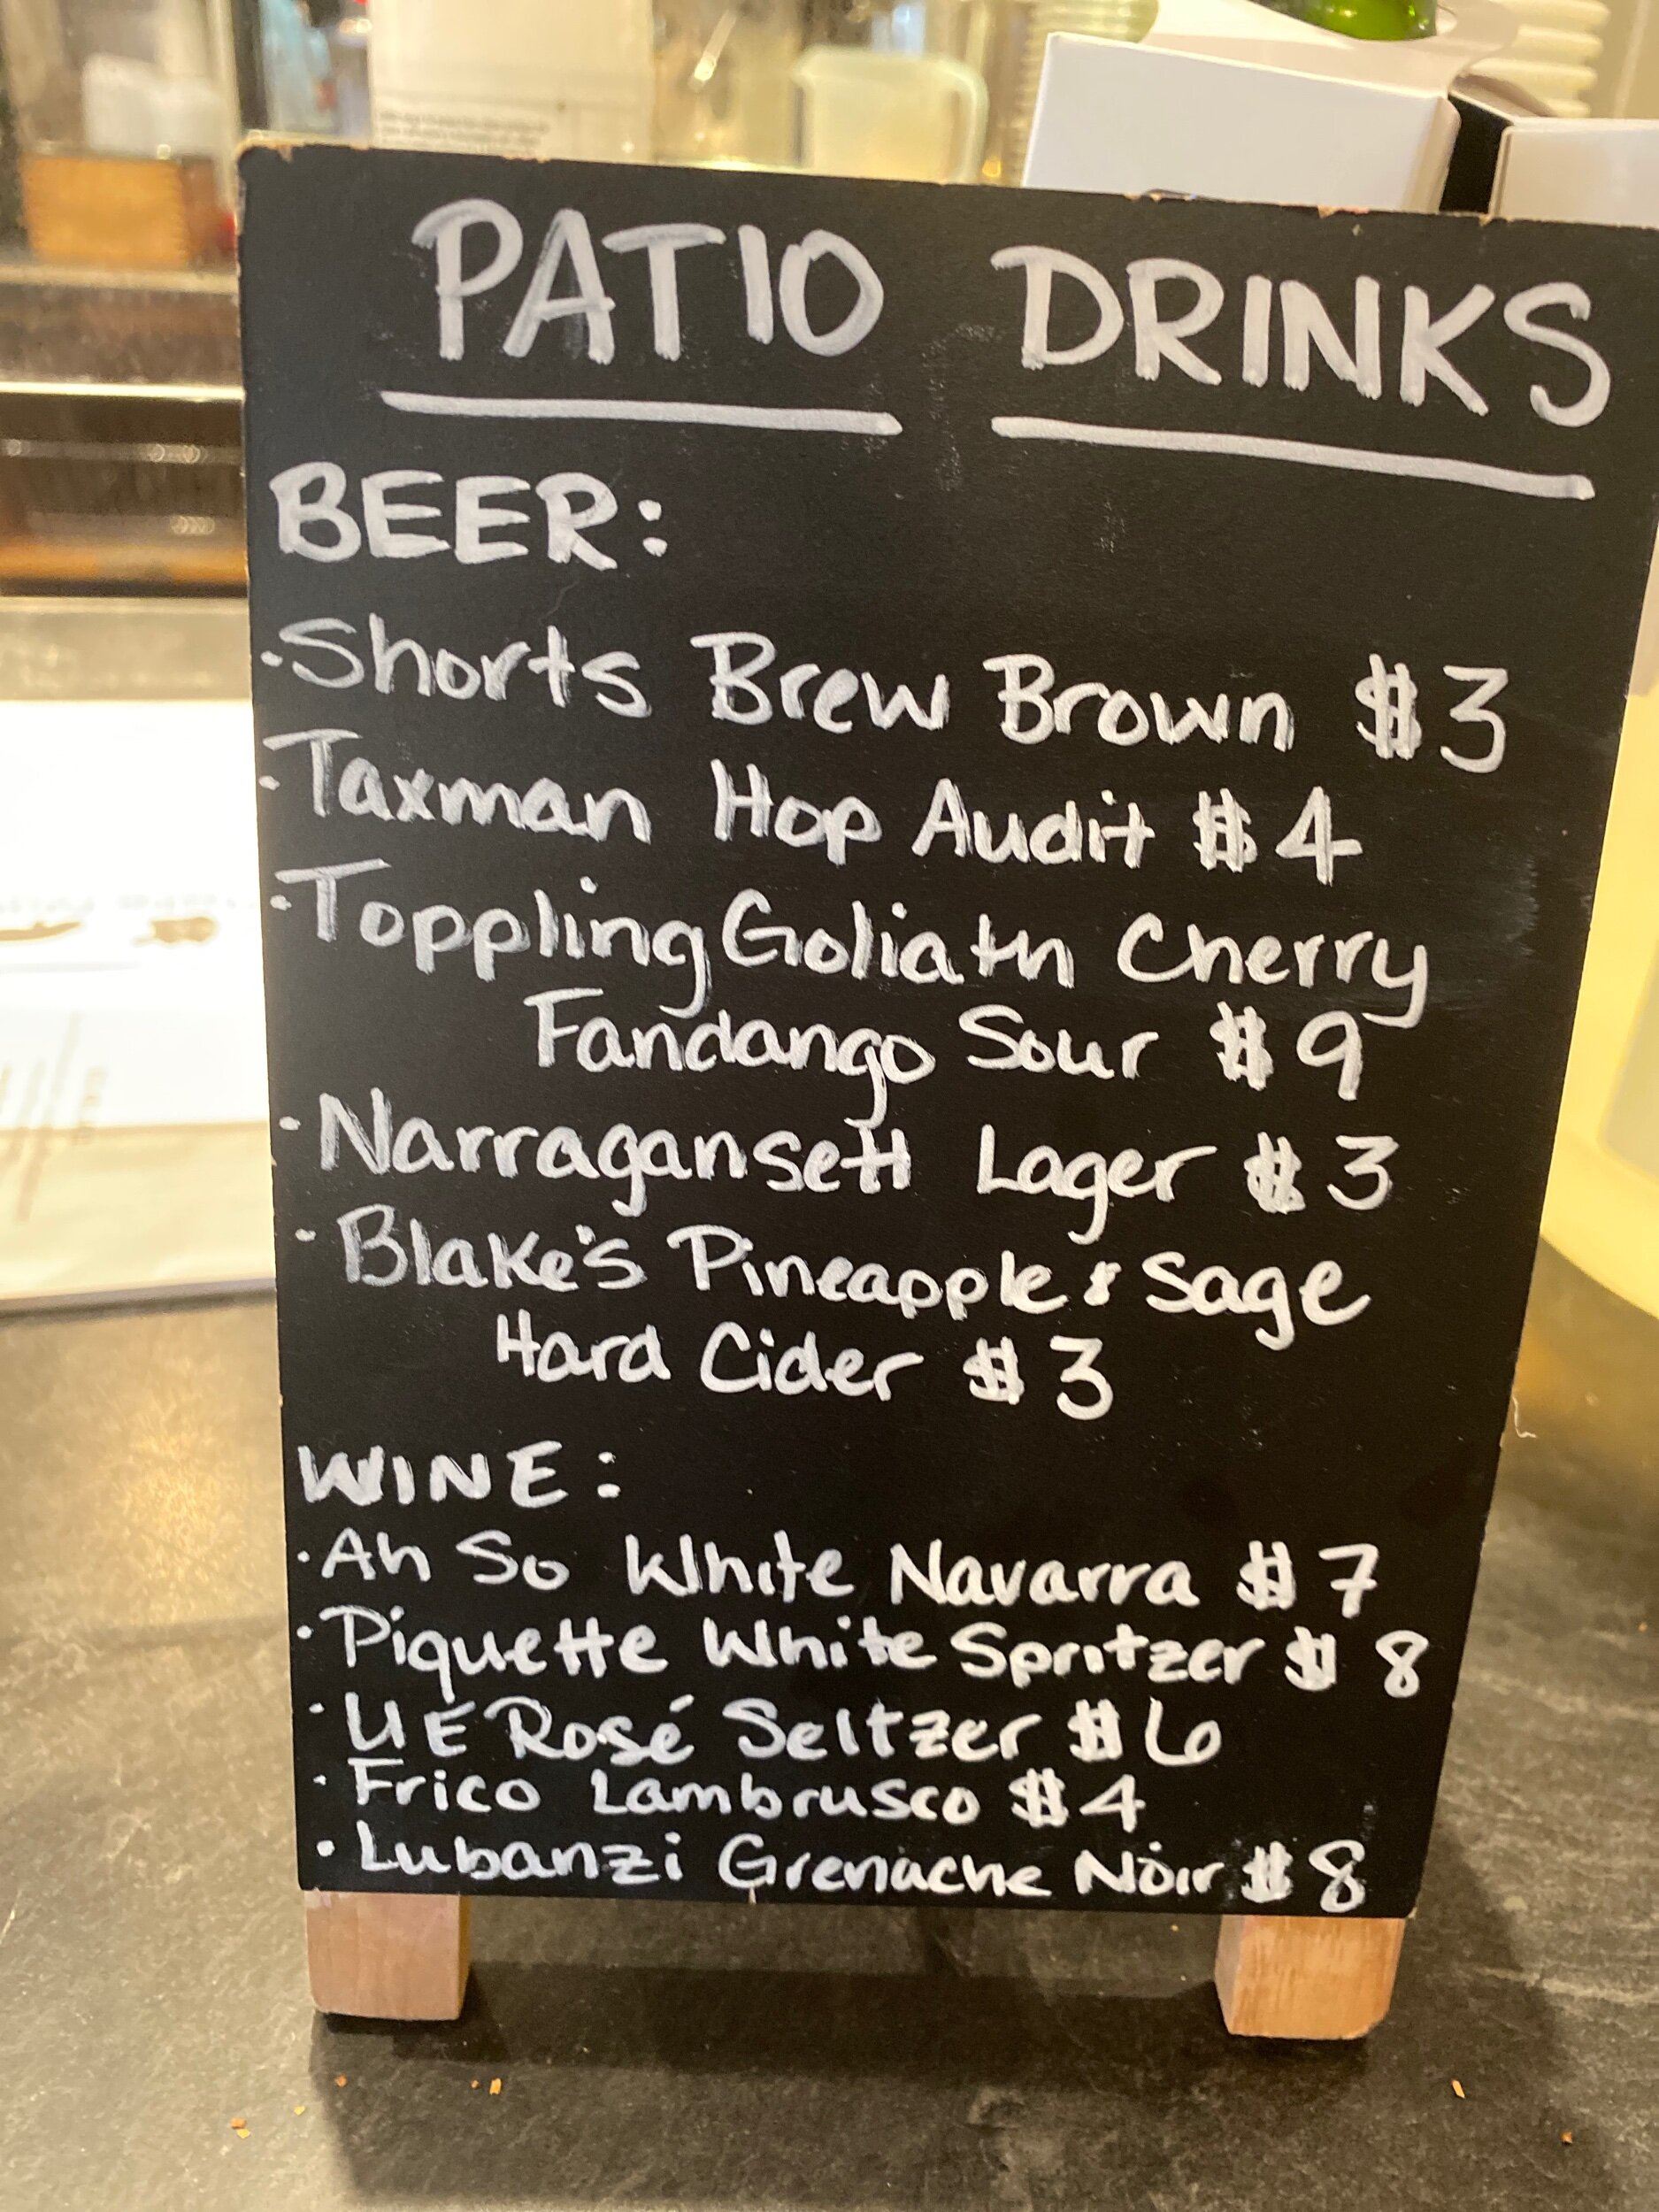 PATIO DRINKS
BEER:
·Shorts Brew Brown $3
·Taxman Hop Audit $4
·Toppling Goliath Cherry
Fandango Sour $9
·Narragansett Lager $3
·Blake's Pineapple & Sage
Hard Cider $3
WINE:
·Ah So White Navarra $7
·Piquette White Spritzer $8
·UE Rosé Seltzer $6
·Frico Lambrusco $4
·Lubanzi Grenache Noir $8